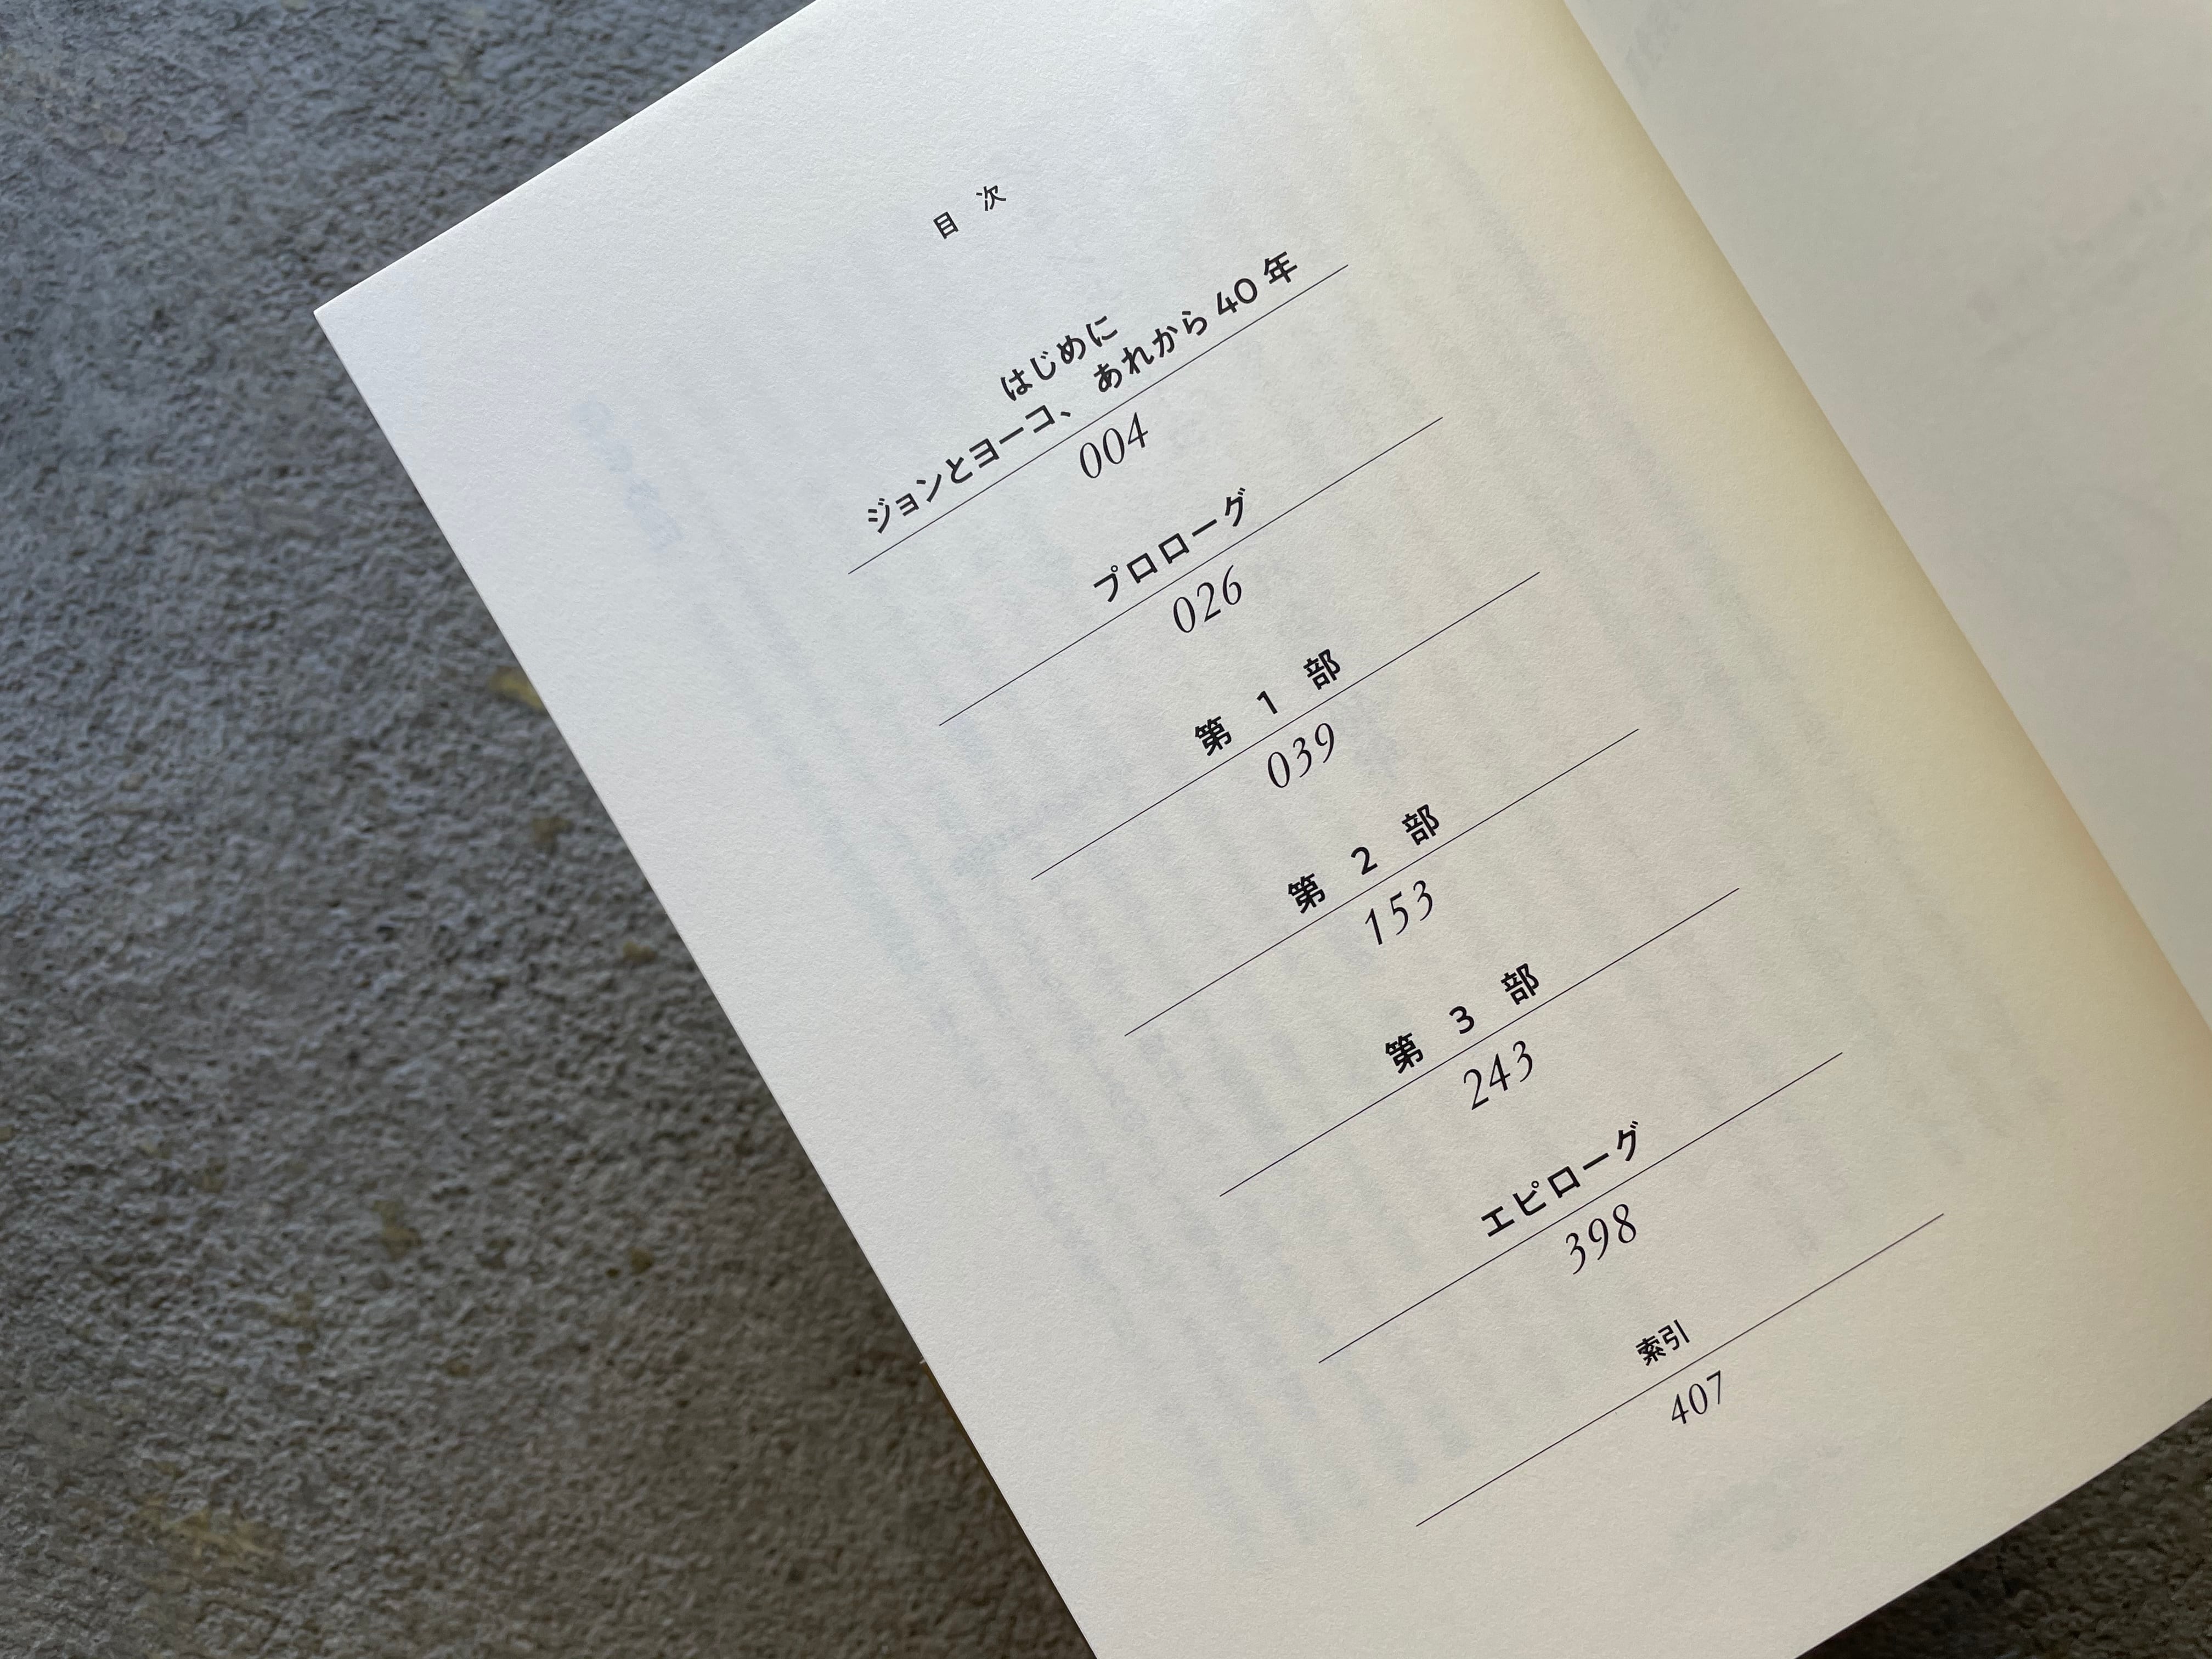 目 次
はじめに
ジョンとヨーコ、あれから40年
004
プロローグ
026
第 1 部
039
第 2 部
153
第 3 部
243
エピローグ
398
索引
407